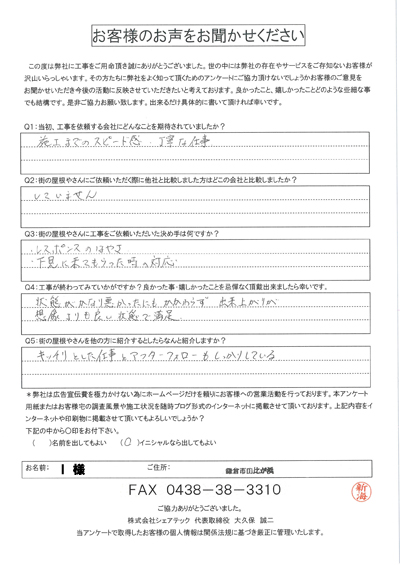 お客様のお声をお聞かせください
この度は弊社に工事をご用命頂き誠にありがとうございました。世の中には弊社の存在やサービスをご存知ないお客様が
沢山いらっしゃいます。その方たちに弊社をよく知って頂くためのアンケートにご協力頂けないでしょうかお客様のご意見を
お聞かせいただき今後の活動に反映させていただきたいと考えております。良かったこと、嬉しかったことどのような些細な事
でも結構です。是非ご協力お願い致します。出来るだけ具体的に書いて頂ければ幸いです。
Q1:当初、工事を依頼する会社にどんなことを期待されていましたか?
施工までのスピード感・丁寧な仕事
Q2:街の屋根やさんにご依頼いただく際に他社と比較しました方はどこの会社と比較しましたか?
していません
Q3:街の屋根やさんに工事をご依頼いただいた決め手は何ですか?
・レスポンスのはやさ
・下見に来てもらった時の対応
Q4:工事が終わってみていかがですか?良かった事・嬉しかったことを忌憚なく頂戴出来ましたら幸いです。
状態がかなり悪かったにもかかわらず 出来上がりが
想像よりも良い状態で満足
Q5:街の屋根やさんを他の方に紹介するとしたらなんと紹介しますか?
キッチリとした仕事とアフターフォローもしっかりしている
*弊社は広告宣伝費を極力かけない為にホームページだけを頼りにお客様への営業活動を行っております。本アンケート
用紙またはお客様宅の調査風景や施工状況を随時ブログ形式のインターネットに掲載させて頂いております。上記内容をイ
ンターネットや印刷物に掲載させて頂いてもよろしいでしょうか?
下記の中から〇印をお付下さい。
( )名前を出してもよい (〇)イニシャルなら出してもよい
お名前: I 様 ご住所: 鎌倉市由比が浜
FAX 0438-38-3310
新海
ご協力ありがとうございました。
株式会社シェアテック 代表取締役 大久保 誠二
当アンケートで取得したお客様の個人情報は関係法規に基づき厳正に管理いたします。